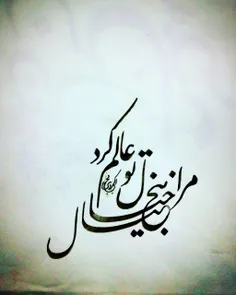 مرا خیال تو
بی خیال عالم کرد